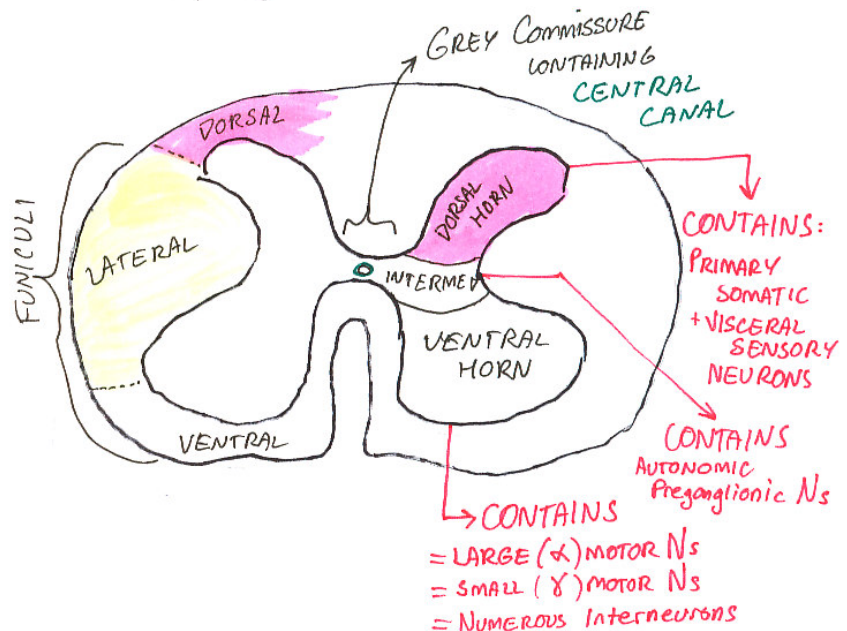 GREY COMMISSURE
CONTAINING
CENTRAL
CANAL
DORSAL
DORSAL
HORN
FUNICULI
LATERAL
INTERMED
VENTRAL
HORN
VENTRAL
CONTAINS:
PRIMARY
SOMATIC
+ VISCERAL
SENSORY
NEURONS
CONTAINS
AUTONOMIC
Preganglionic Ns
CONTAINS
= LARGE (α) MOTOR Ns
= SMALL (γ) MOTOR Ns
= NUMEROUS Interneurons